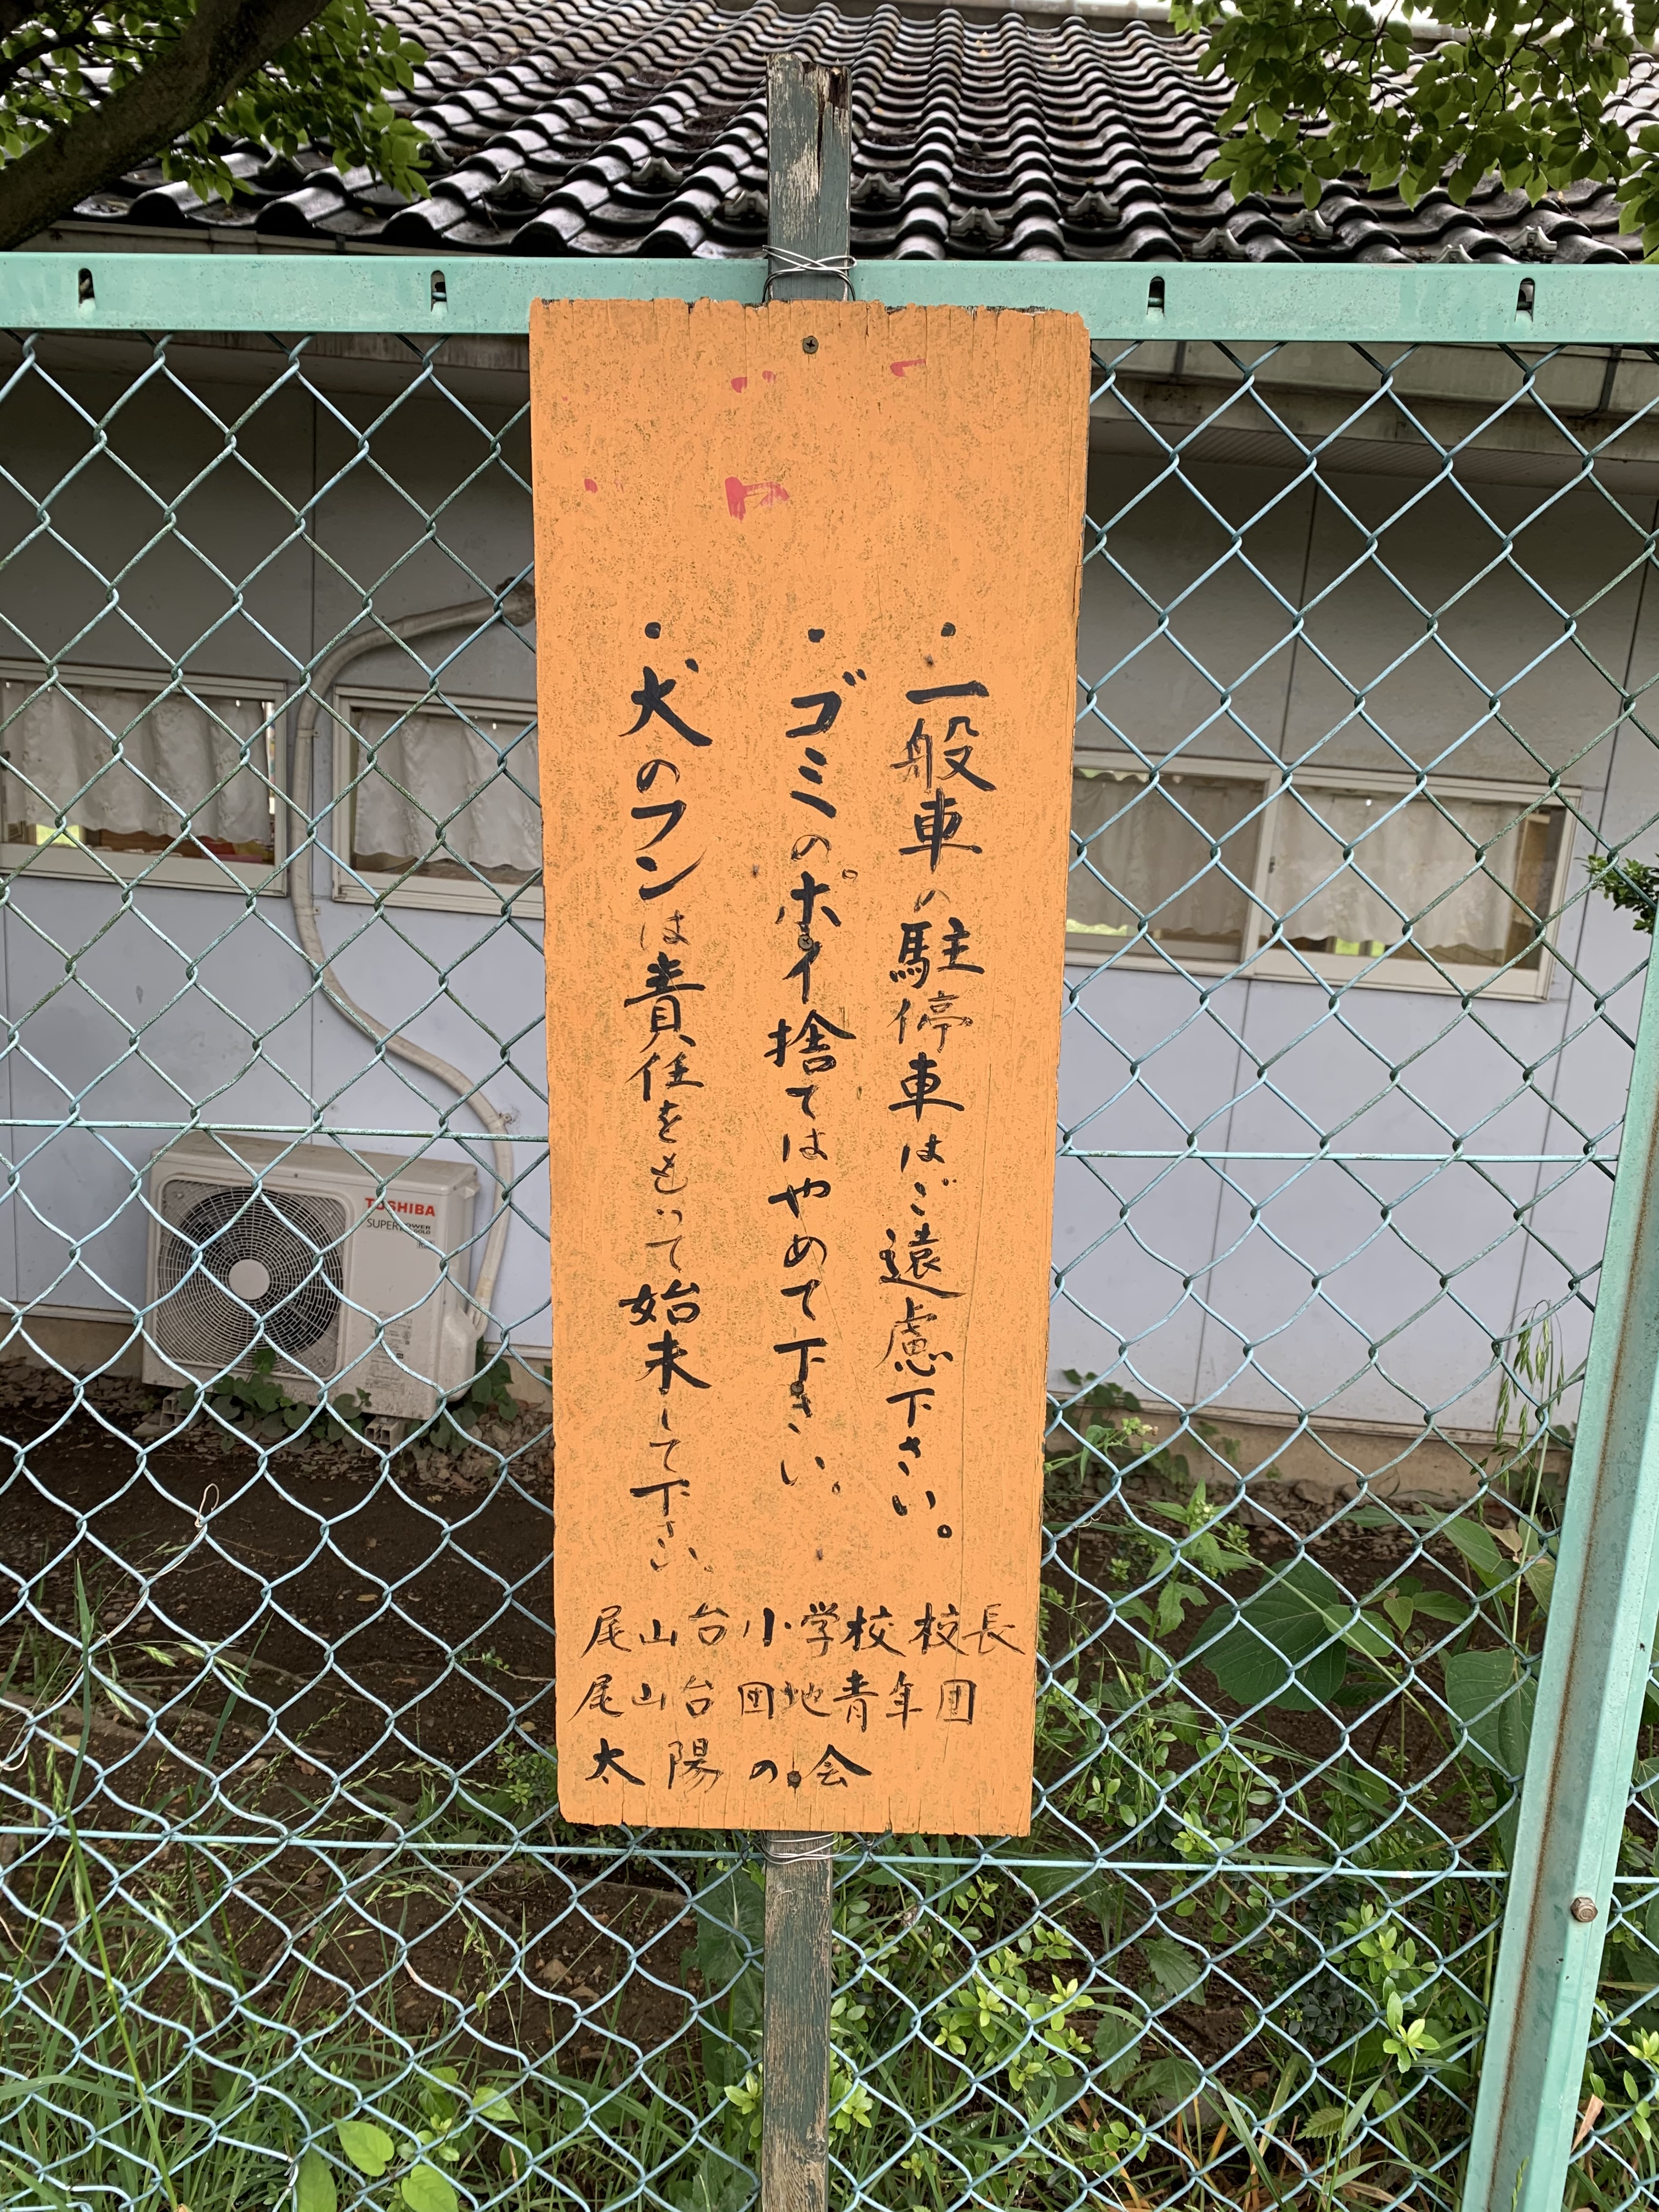 ・一般車の駐停車はご遠慮下さい。
・ゴミのポイ捨てはやめて下さい。
・犬のフンは責任をもって始末して下さい。
尾山台小学校校長
尾山台団地青年団
太陽の会
TOSHIBA
SUPER POWER